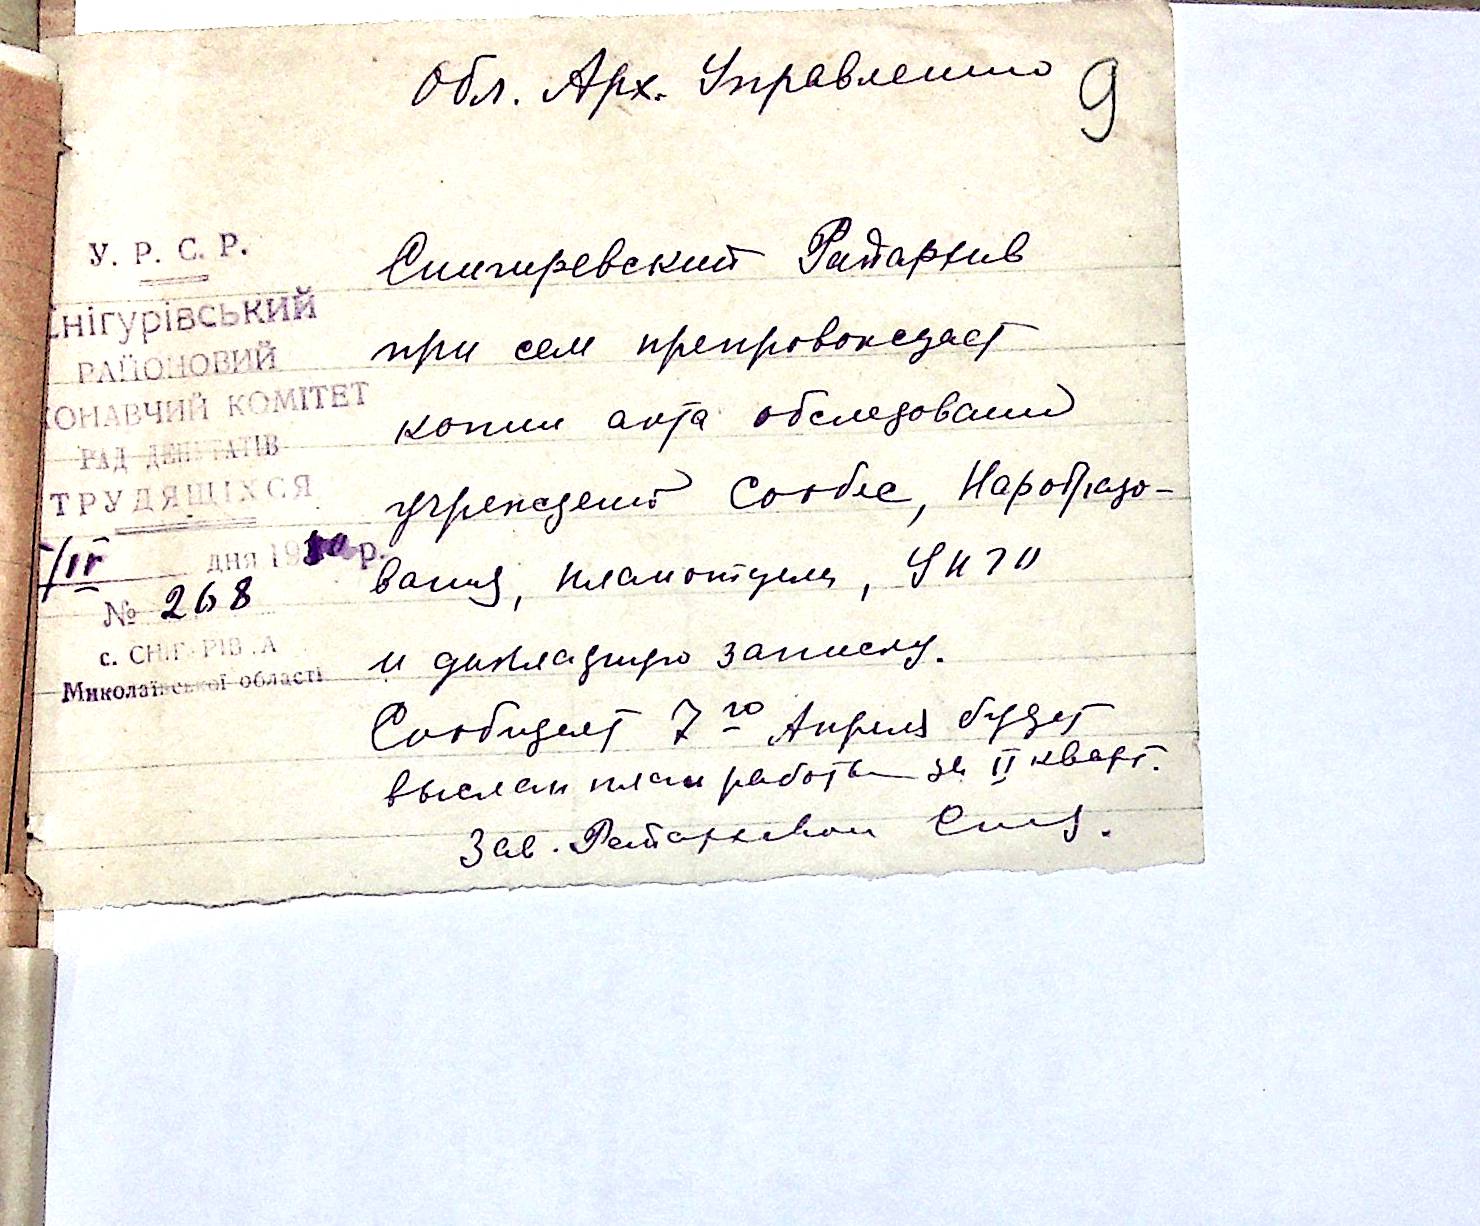 Обл. Арх. Управлению
9
У. Р. С. Р.
Снігурівський
РАЙОНОВИЙ
КОНАВЧИЙ КОМІТЕТ
РАД ДЕПУТАТІВ
ТРУДЯЩІХСЯ
/IV дня 19 р.
№ 268
с. СНІГУРІВКА
Миколаївської області
Снигиревский Райархив
при сем препровождает
копии акта обследований
учреждений Собес, Наробразо-
вания, планотдела,
и докладную записку.
Сообщает 7го Апреля будет
выслан план работы за II кварт.
Зав. Райархивом